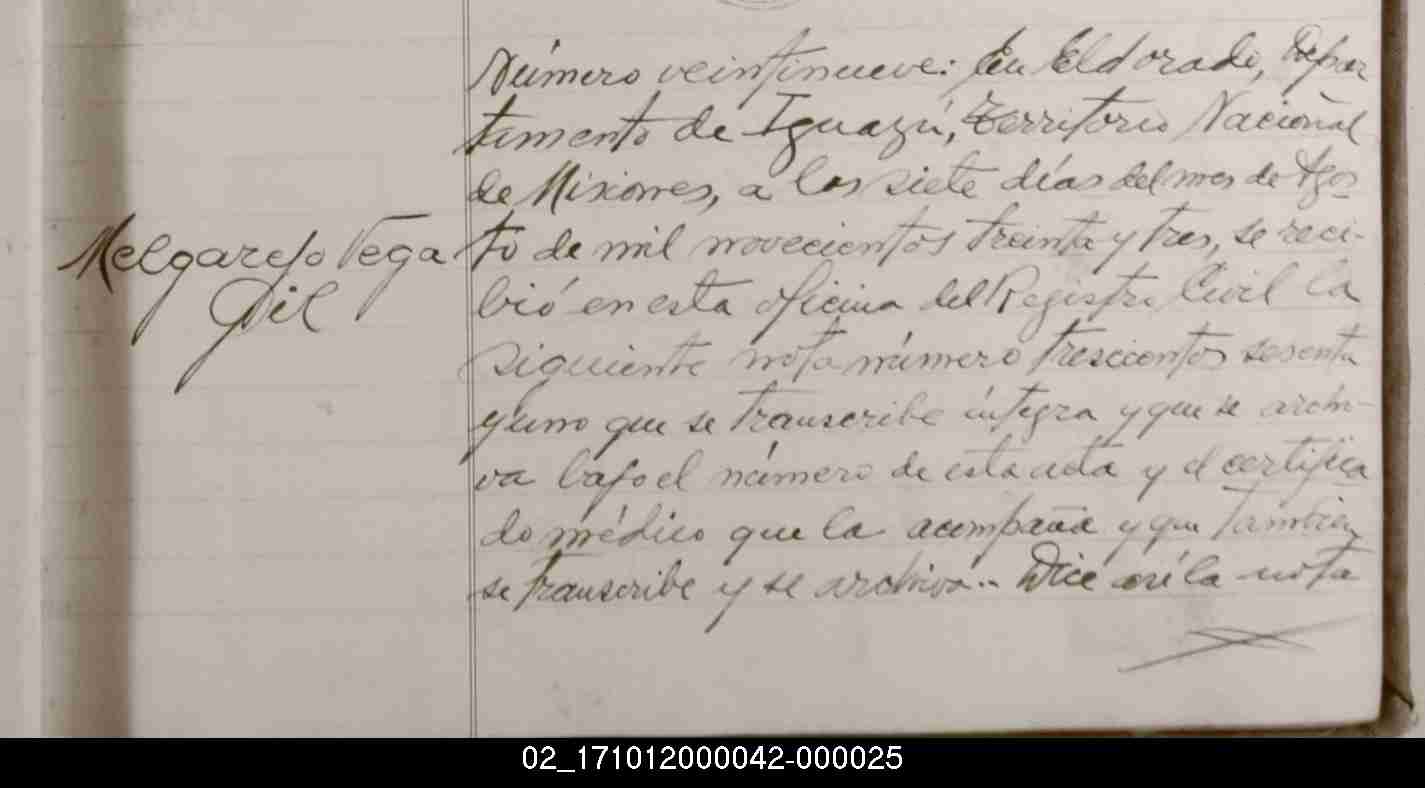 Número veintinueve: En Eldorado, Depar
tamento de Iguazú, Territorio Nacional
de Misiones, a los siete días del mes de Agos
Melgarejo Vega
Gil
to de mil novecientos treinta y tres, se reci-
bió en esta oficina del Registro Civil la
siguiente nota número trescientos sesenta
y uno que se transcribe íntegra y que se archi-
va bajo el número de esta acta y el certifica
do médico que la acompaña y que también
se transcribe y se archiva.. Dice así la nota
02_171012000042-000025